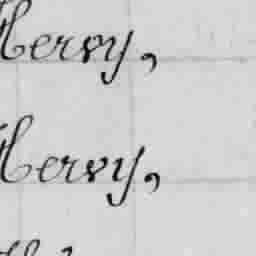 Hervy,
Hervy,